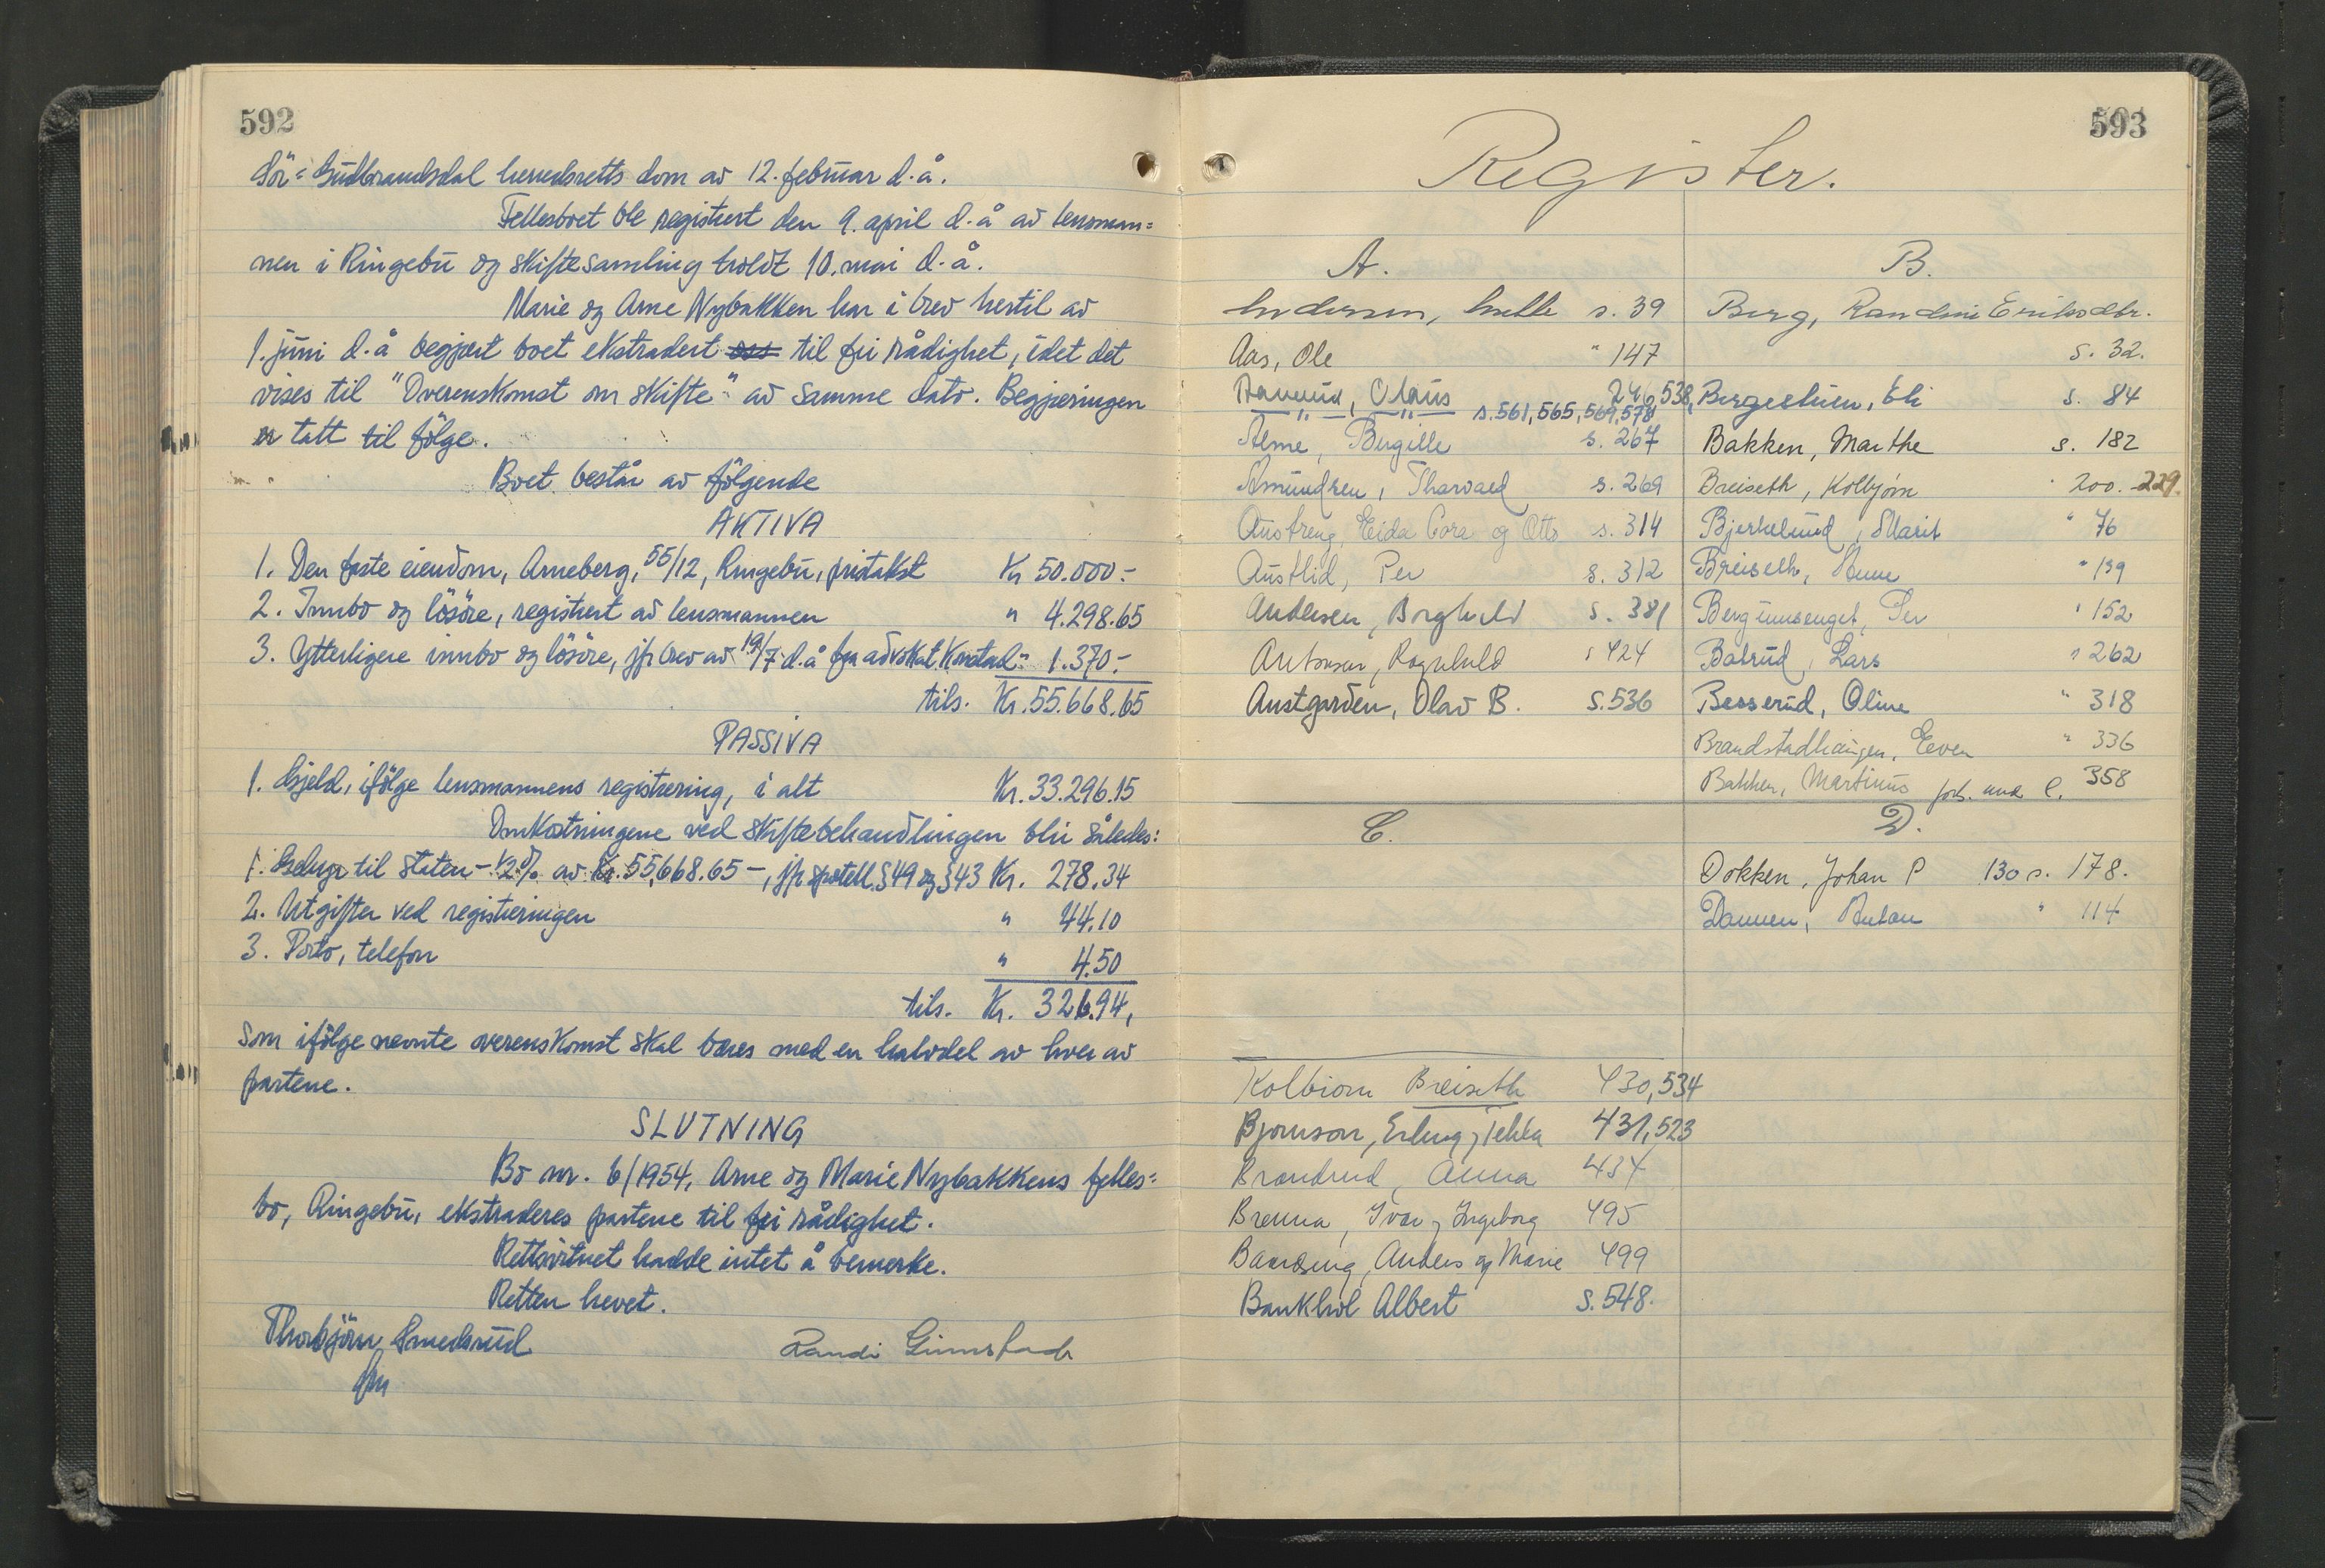 592
Sör-Gudbrandsdal herredsretts dom av 12. februar d.å.
Fellesboet ble registrert den 9. april d.å av lensman=
nen i Ringebu og skiftesamling holdt 10. mai d.å.
Marie og Arne Nybakken har i brev hertil av
1. juni d.å begjært boet ekstradert til fri rådighet, idet det
vises til "Overenskomst om skifte" av samme dato. Begjæringen
er tatt til følge.
Boet består av følgende
AKTIVA
1. Den faste eiendom, Arneberg, 55/12, Ringebu, pristakst Kr 50.000.-
2. Innbo og lösöre, registrert av lensmannen " 4.298.65
3. Ytterligere innbo og lösöre, jfr brev av 19/7 d.å fra advokat " 1.370.-
tils. Kr. 55.668.65
PASSIVA
1. Gjeld, ifölge lensmannens registrering, i alt Kr. 33.296.15
Omkostningene ved skiftebehandlingen blir således:
1. Gebyr til staten - 1/2% av Kr. 55,668.65 -, jfr sportell. § 49 og § 43 Kr. 278.34
2. Utgifter ved registreringen " 44.10
3. Porto, telefon " 4.50
tils. Kr. 326.94,
som ifölge nevnte overenskomst skal bæres med en halvdel av hver av
partene.
SLUTNING
Bo nr. 6/1954, Arne og Marie Nybakkens felles=
bo, Ringebu, ekstraderes partene til fri rådighet.
Rettsvitnet hadde intet å bemerke.
Retten hevet.
Thorbjörn Smedsrud Randi Grimstad
fm
593
Register.
A.
Andersen, s. 39
Aas, Ole " 147
Olaus 246, 538,
" " s. 561, 565, 569, 578
Alme, Bergitte s. 267
Amundsen, Tharvald s. 269
Austreng, Eida Cora og Otto s. 314
Austlid, Per s. 312
Andersen, Borghild s. 381
Antonsen, Ragnhild s 424
Austgarden, Olav B. S. 536
B.
Berg, Randine Eriksdtr.
s. 32.
Eli s. 84
Bakken, Marthe s. 182
Breiseth, Kolbjörn " 200. 229.
Bjerkelund, Marit " 76
Breiseth, " 139
Bergumsenget, Per " 152
Båtrud, Lars " 262
Besserud, Oline " 318
Brandstadhaugen, Even " 336
Bakken, Martinus forts. und. C. 358
C.
Kolbiorn Breiseth 430, 534
Bjornson, Erling, Jehka 431, 523
Brandrud, Anna 434
Brenna, Ivar og Ingeborg 495
Baardseng, Anders og Marie 499
Bankhol Albert s. 548.
D.
Dokken, Johan P 130 s. 178.
Dannen, Anton " 114